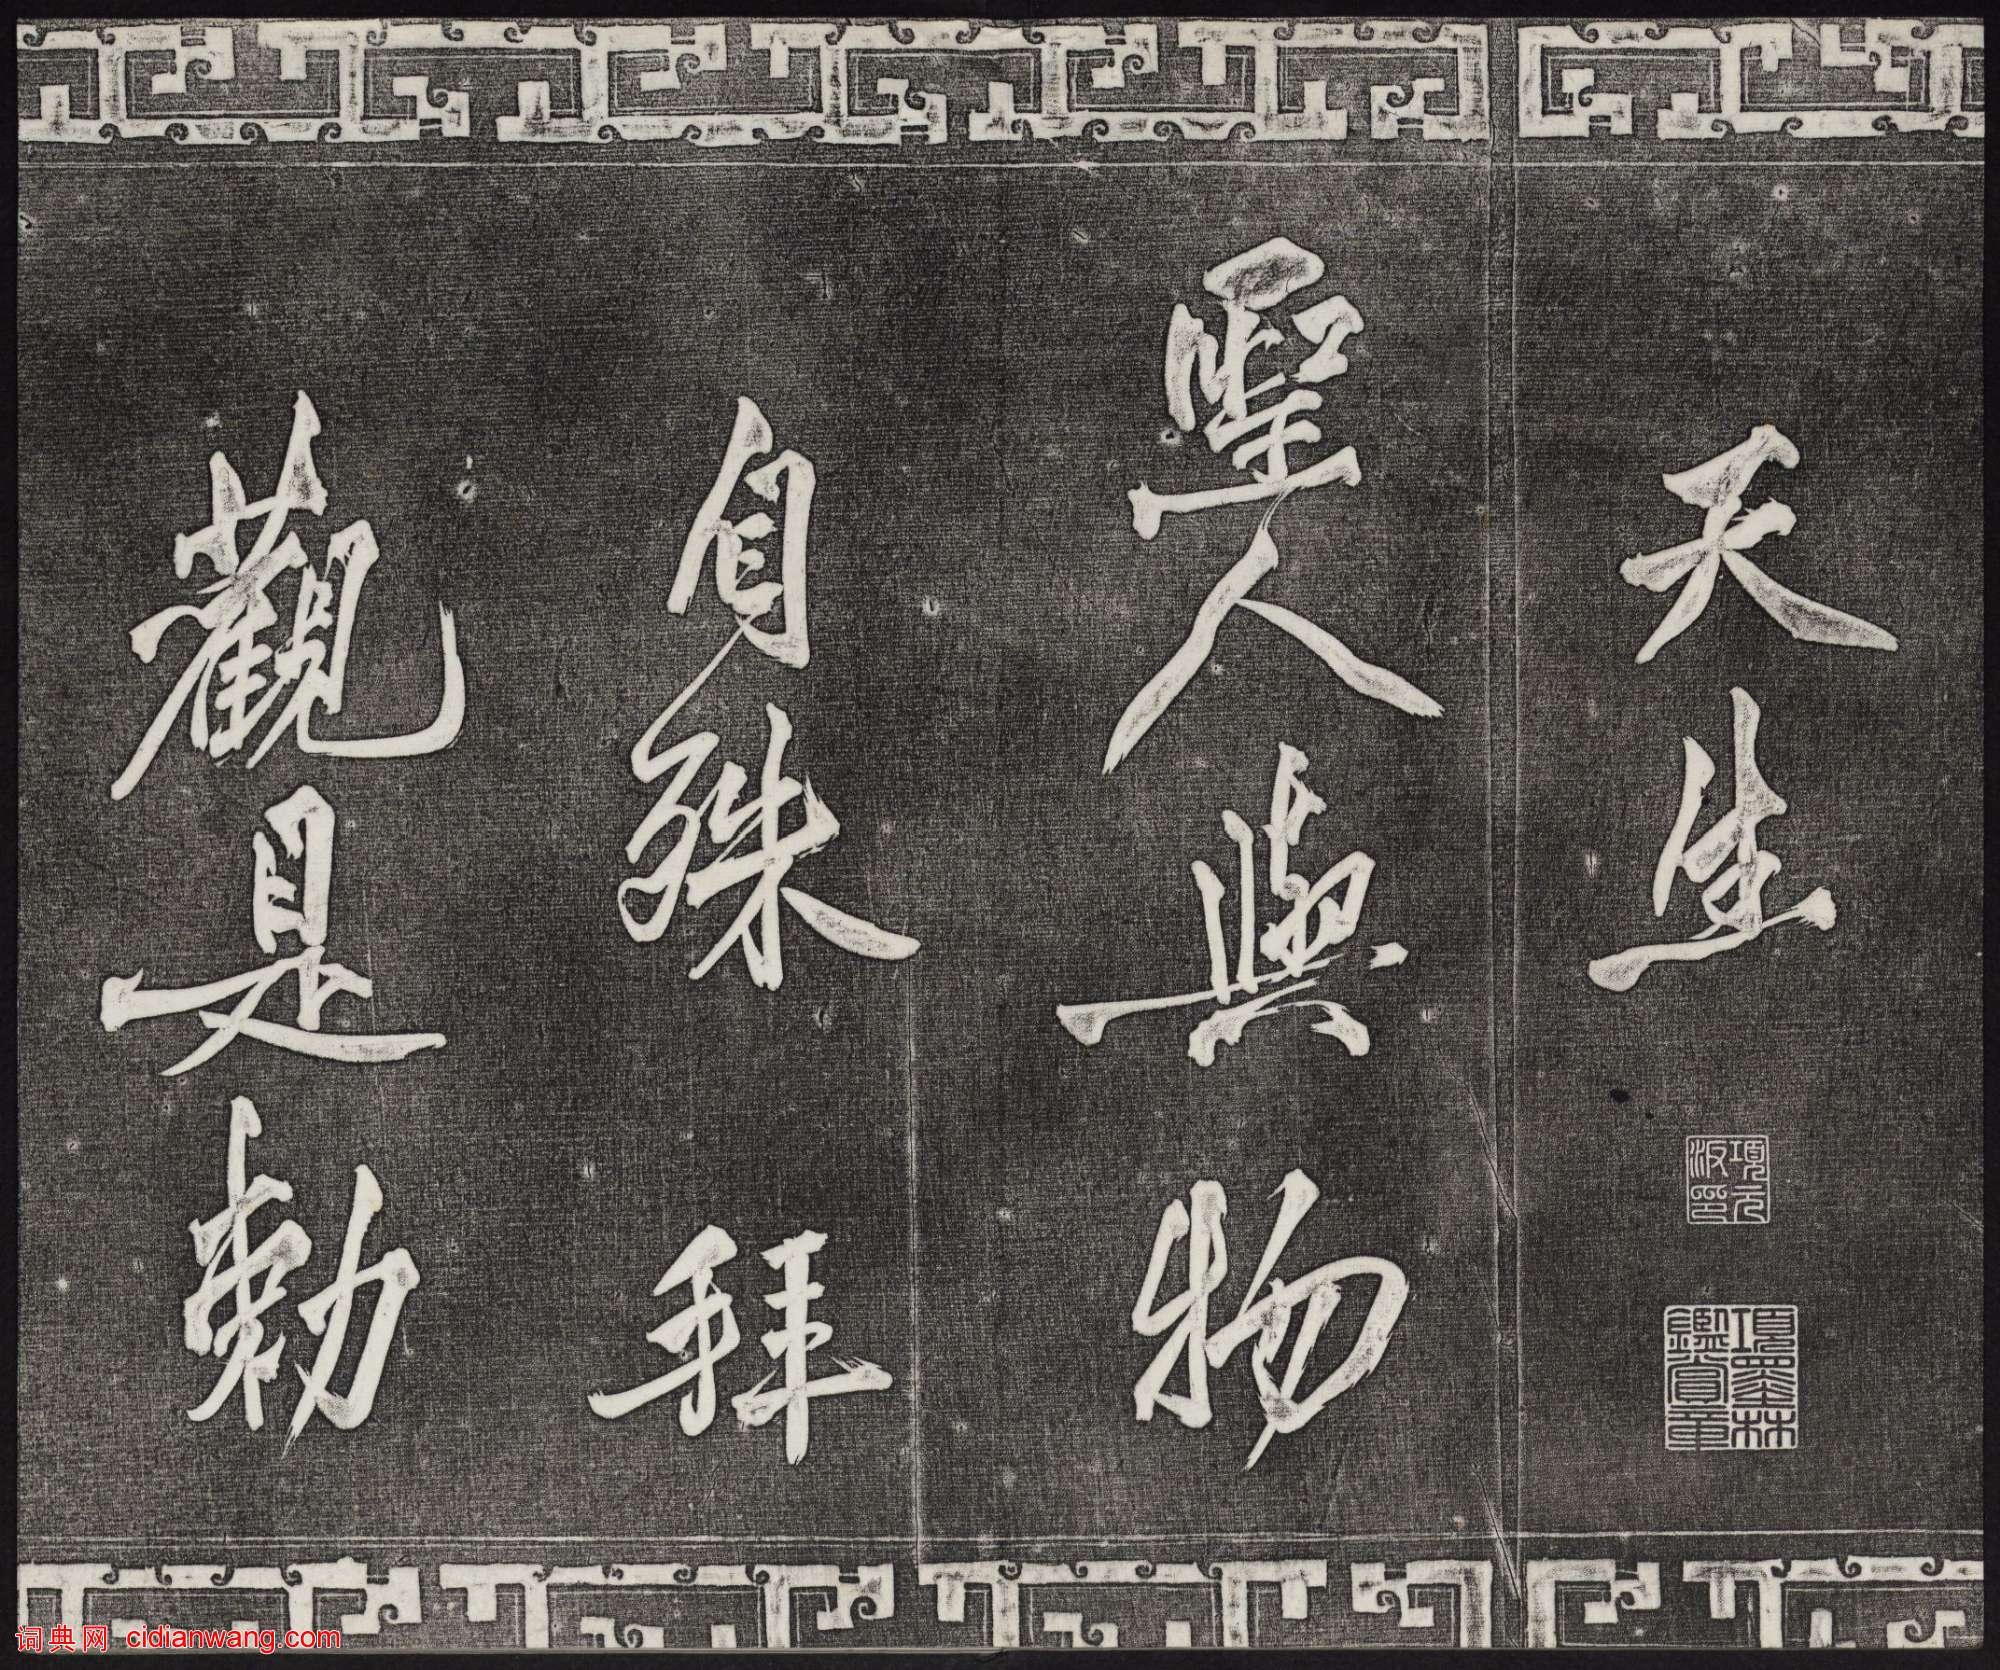 天生
項元汴印
項墨林鑑賞章
聖人與物
自殊拜
觀是勅
词典网 cidianwang.com